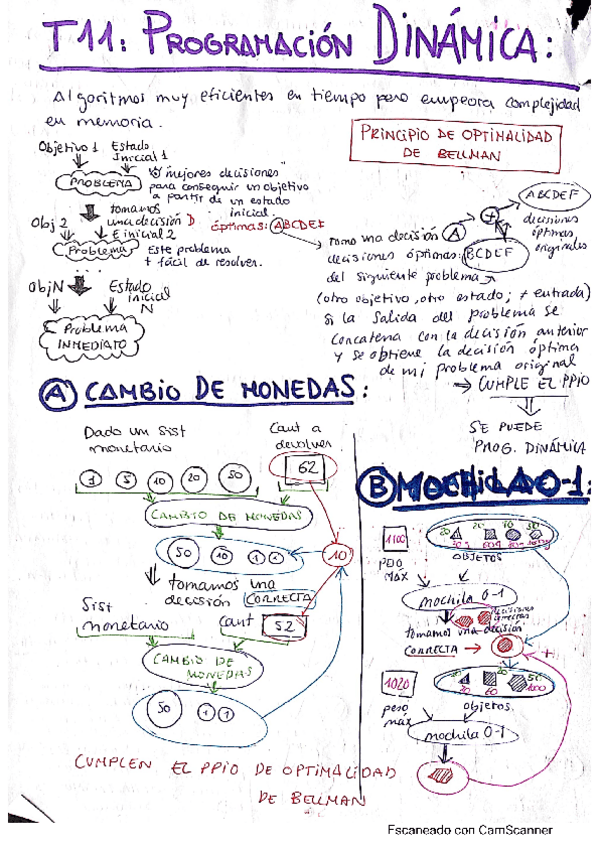 T11: PROGRAMACIÓN DINÁMICA:
Algoritmos muy eficientes en tiempo pero empeora complejidad
en memoria.
PRINCIPIO DE OPTIMALIDAD
DE BELLMAN
Objetivo 1 Estado
Inicial 1
PROBLEMA
mejores decisiones
para conseguir un objetivo
a partir de un estado
inicial.
tomamos
una decisión D
Obj 2 E inicial 2
óptimas: ABCDEF
Problema
Este problema
+ fácil de resolver.
ObjN Estado
inicial
N
Problema
INMEDIATO
ABCDEF
decisiones
óptimas
originales
+
Tomo una decisión A
decisiones óptimas: BCDEF
del siguiente problema
(otro objetivo, otro estado; ≠ entrada)
Si la salida del problema se
concatena con la decisión anterior
y se obtiene la decisión óptima
de mi problema original
→ CUMPLE EL PPIO
SE PUEDE
PROG. DINÁMICA
A CAMBIO DE MONEDAS:
Dado un Sist
monetario
Cant a
devolver
1 5 10 20 50
62
CAMBIO DE MONEDAS
50 10 1 1
10
tomamos una
decisión CORRECTA
Sist
monetario
Cant 52
CAMBIO DE
MONEDAS
50 1 1
B MOCHILA 0-1:
1100
peso
máx
OBJETOS
mochila 0-1
decisiones
correctas
tomamos una decisión
CORRECTA →
+
1020
peso
máx
objetos.
mochila 0-1
CUMPLEN EL PPIO DE OPTIMALIDAD
DE BELLMAN
Escaneado con CamScanner